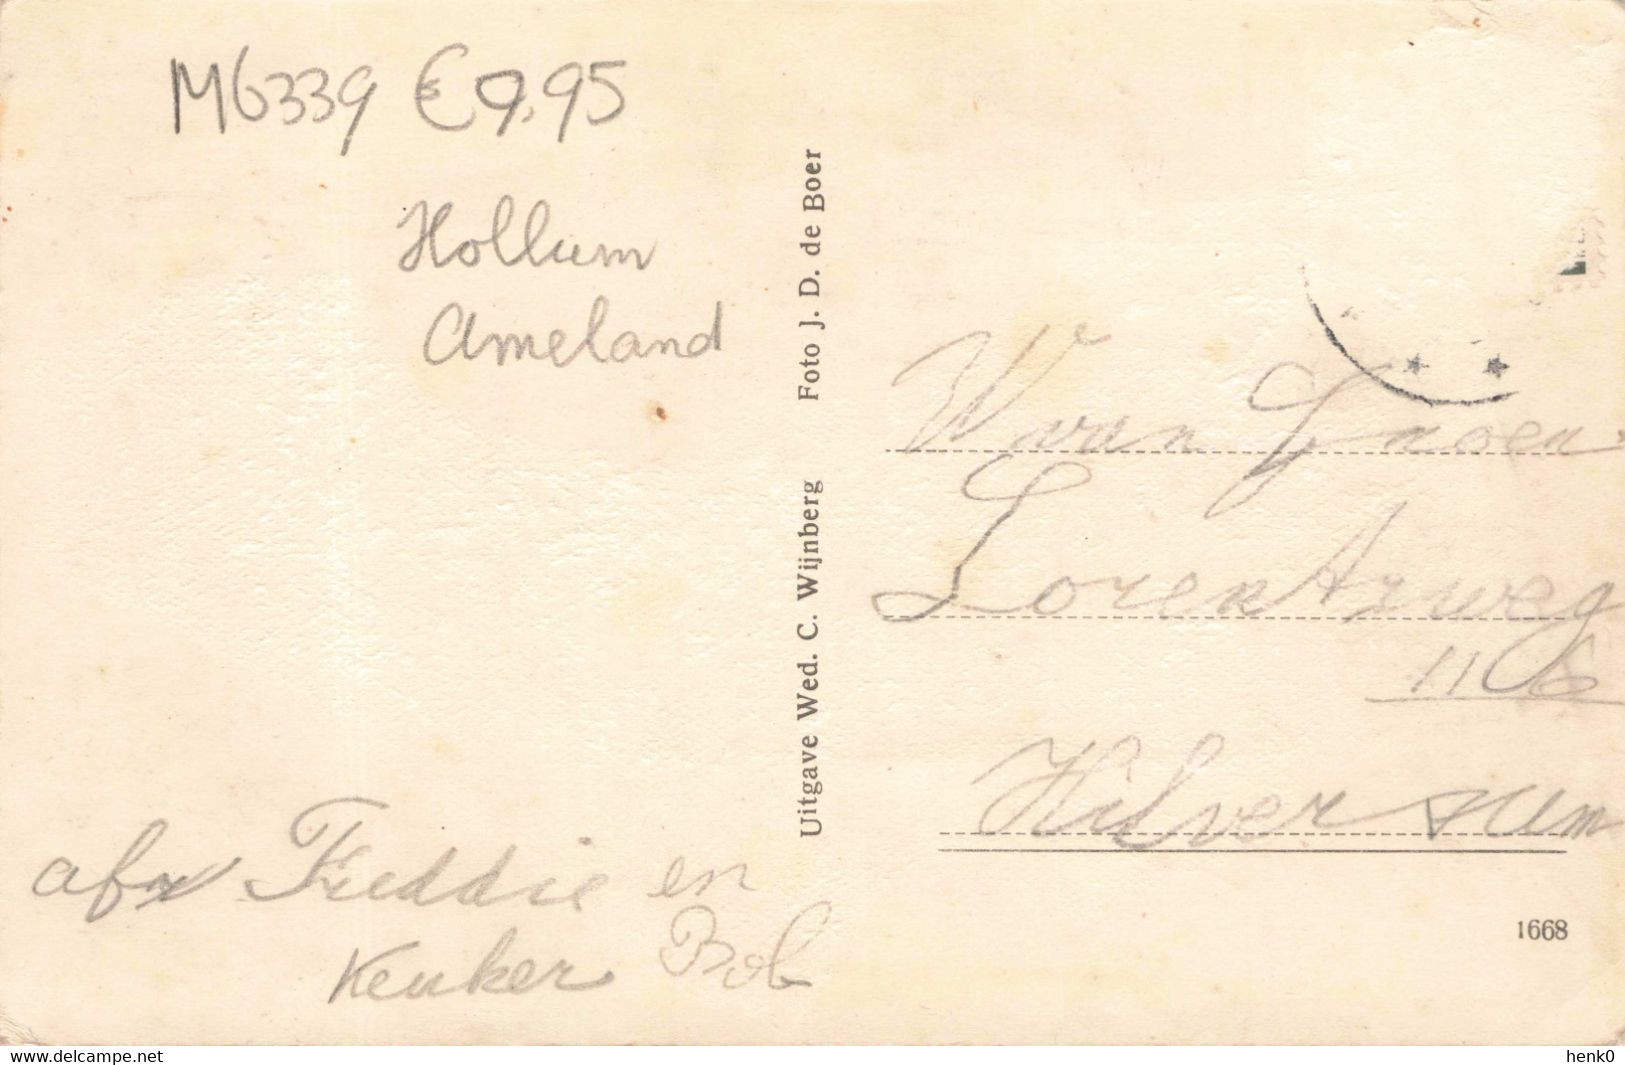 M6339 €9,95
Hollum
Ameland
Uitgave Wed. C. Wijnberg Foto J. D. de Boer
W van
Lorentzweg
1106
Hilversum
afz Freddie en
Keuker Bob
1668
delcampe.net
henk0